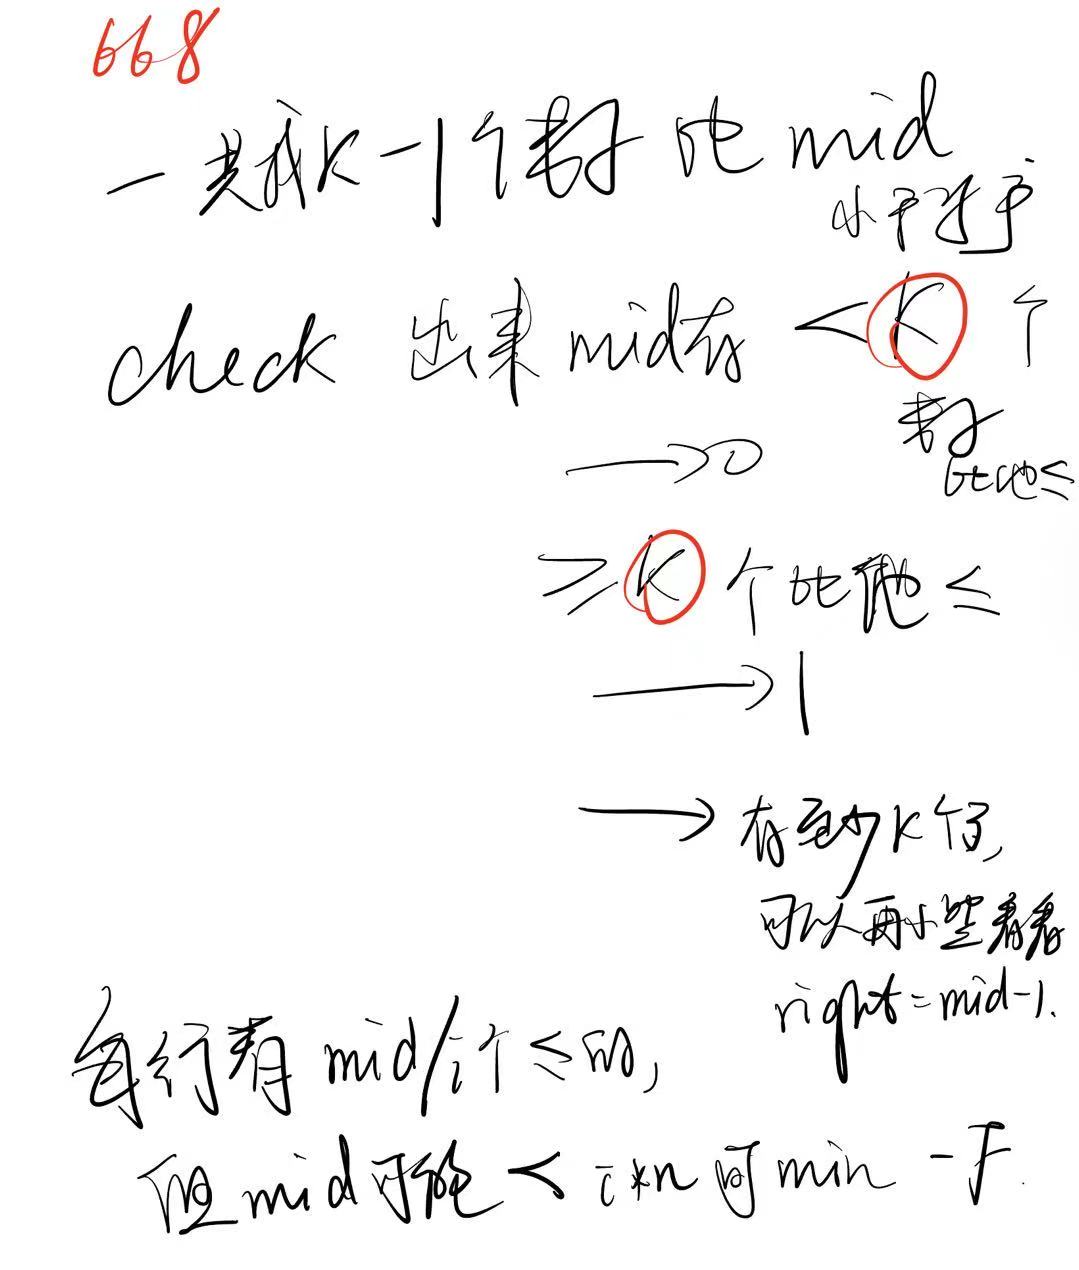 668
一共或K-1个数 比 mid
小于等于
check 出来 mid有 <K 个
数
比他≤
→0
≥K 个比他≤
→1
→ 有至少K个了,
可以再小些看看
right=mid-1.
每行有 mid/i个≤的,
但mid可能 < i*n 可min 一下.